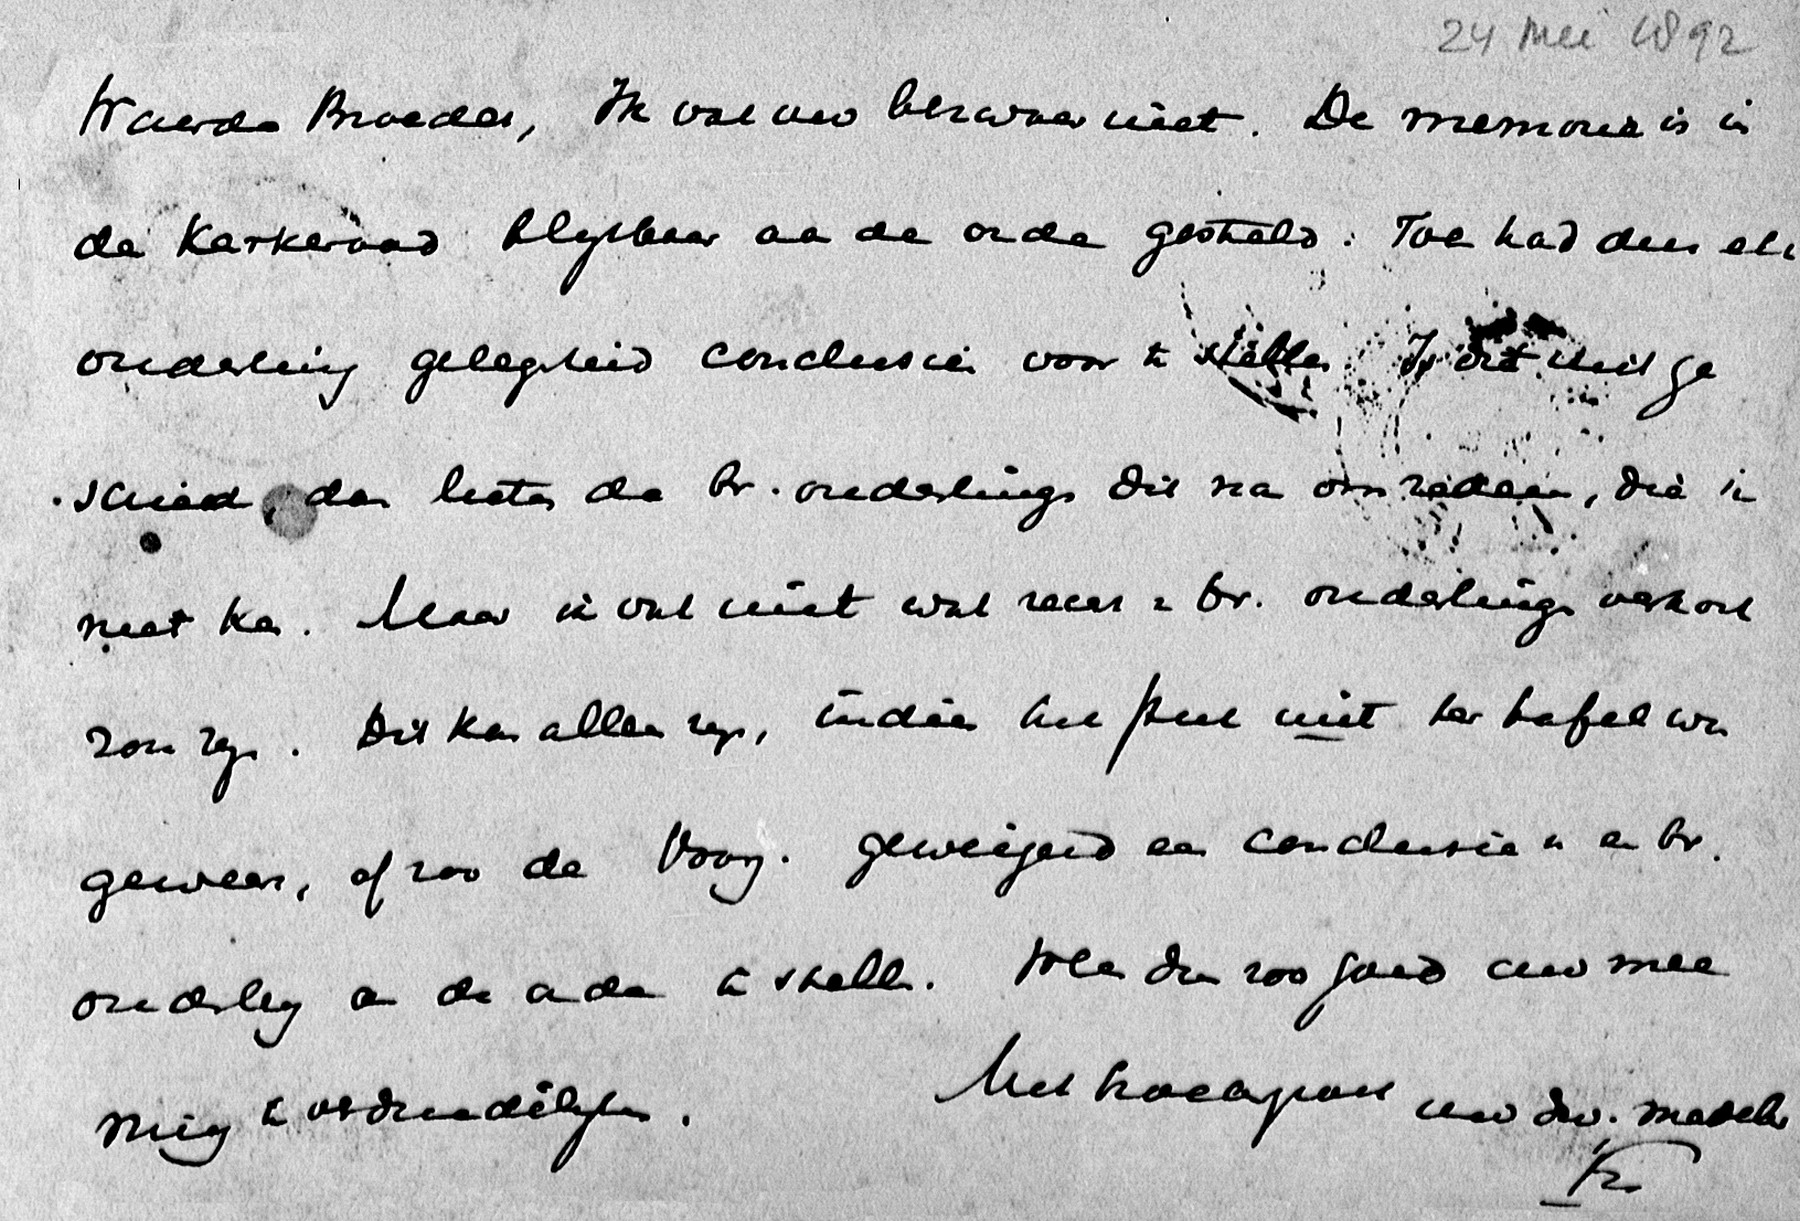 24 Mei 1892
Waerde Broeder, Ik vat uw bezwaar niet. De memorie is in
de Kerkeraad blijkbaar aan de orde gesteld. Toen had dus elk
ouderling gelegenheid conclusiën voor te stellen. Is dit niet ge
schied, dan lieten de br. ouderlings dit na om redenen, die ik
niet ken. Maar ik vat niet wat recht v. br. ouderlings verkort
zou zijn. Dit kan alleen zijn, indien het stuk niet ter tafel ware
geweest, of zoo de Voorz. geweigerd een conclusie v. een br.
ouderling aan de orde te stellen. Wees dus zoo goed uw mee
ning te verduidelijken. Met hoogachting uw dw. medebr